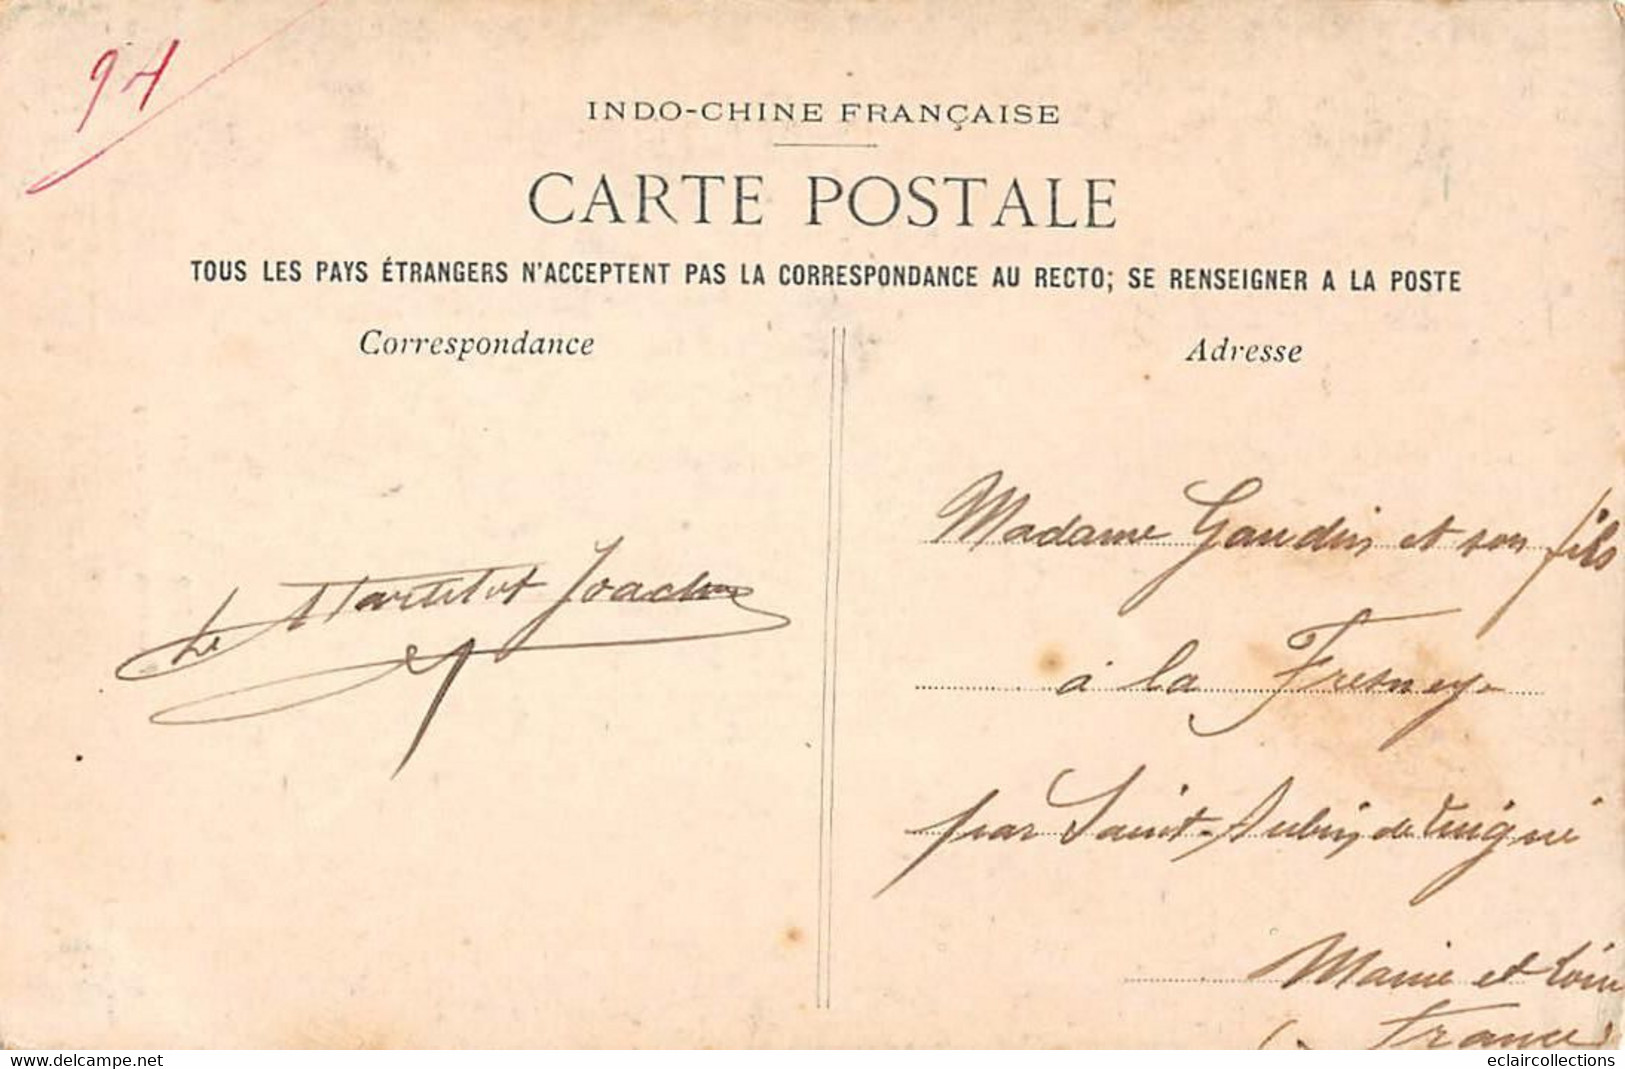 94
INDO-CHINE FRANÇAISE
CARTE POSTALE
TOUS LES PAYS ÉTRANGERS N'ACCEPTENT PAS LA CORRESPONDANCE AU RECTO; SE RENSEIGNER A LA POSTE
Correspondance
Adresse
Le Joachim
Madame Gaudin et son fils
à la Fresney
par Saint-Aubin de Luigné
Maine et Loire
France
eclaircollections